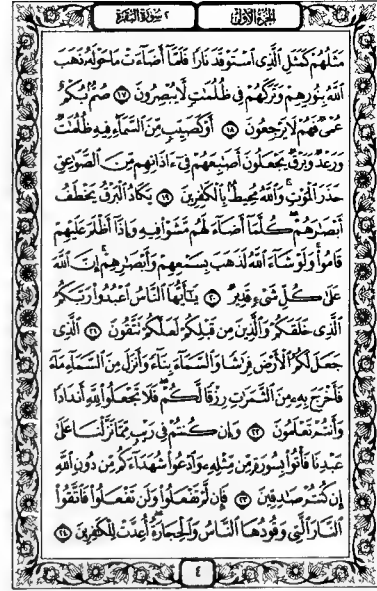 الجزء الأول
٢ سورة البقرة
مَثَلُهُمْ كَمَثَلِ ٱلَّذِى ٱسْتَوْقَدَ نَارًا فَلَمَّآ أَضَآءَتْ مَا حَوْلَهُۥ ذَهَبَ
ٱللَّهُ بِنُورِهِمْ وَتَرَكَهُمْ فِى ظُلُمَٰتٍ لَّا يُبْصِرُونَ ١٧ صُمٌّۢ بُكْمٌ
عُمْىٌ فَهُمْ لَا يَرْجِعُونَ ١٨ أَوْ كَصَيِّبٍ مِّنَ ٱلسَّمَآءِ فِيهِ ظُلُمَٰتٌ
وَرَعْدٌ وَبَرْقٌ يَجْعَلُونَ أَصَٰبِعَهُمْ فِىٓ ءَاذَانِهِم مِّنَ ٱلصَّوَٰعِقِ
حَذَرَ ٱلْمَوْتِ ۚ وَٱللَّهُ مُحِيطٌۢ بِٱلْكَٰفِرِينَ ١٩ يَكَادُ ٱلْبَرْقُ يَخْطَفُ
أَبْصَٰرَهُمْ ۖ كُلَّمَآ أَضَآءَ لَهُم مَّشَوْا۟ فِيهِ وَإِذَآ أَظْلَمَ عَلَيْهِمْ
قَامُوا۟ ۚ وَلَوْ شَآءَ ٱللَّهُ لَذَهَبَ بِسَمْعِهِمْ وَأَبْصَٰرِهِمْ ۚ إِنَّ ٱللَّهَ
عَلَىٰ كُلِّ شَىْءٍ قَدِيرٌ ٢٠ يَٰٓأَيُّهَا ٱلنَّاسُ ٱعْبُدُوا۟ رَبَّكُمُ
ٱلَّذِى خَلَقَكُمْ وَٱلَّذِينَ مِن قَبْلِكُمْ لَعَلَّكُمْ تَتَّقُونَ ٢١ ٱلَّذِى
جَعَلَ لَكُمُ ٱلْأَرْضَ فِرَٰشًا وَٱلسَّمَآءَ بِنَآءً وَأَنزَلَ مِنَ ٱلسَّمَآءِ مَآءً
فَأَخْرَجَ بِهِۦ مِنَ ٱلثَّمَرَٰتِ رِزْقًا لَّكُمْ ۖ فَلَا تَجْعَلُوا۟ لِلَّهِ أَندَادًا
وَأَنتُمْ تَعْلَمُونَ ٢٢ وَإِن كُنتُمْ فِى رَيْبٍ مِّمَّا نَزَّلْنَا عَلَىٰ
عَبْدِنَا فَأْتُوا۟ بِسُورَةٍ مِّن مِّثْلِهِۦ وَٱدْعُوا۟ شُهَدَآءَكُم مِّن دُونِ ٱللَّهِ
إِن كُنتُمْ صَٰدِقِينَ ٢٣ فَإِن لَّمْ تَفْعَلُوا۟ وَلَن تَفْعَلُوا۟ فَٱتَّقُوا۟
ٱلنَّارَ ٱلَّتِى وَقُودُهَا ٱلنَّاسُ وَٱلْحِجَارَةُ ۖ أُعِدَّتْ لِلْكَٰفِرِينَ ٢٤
٤